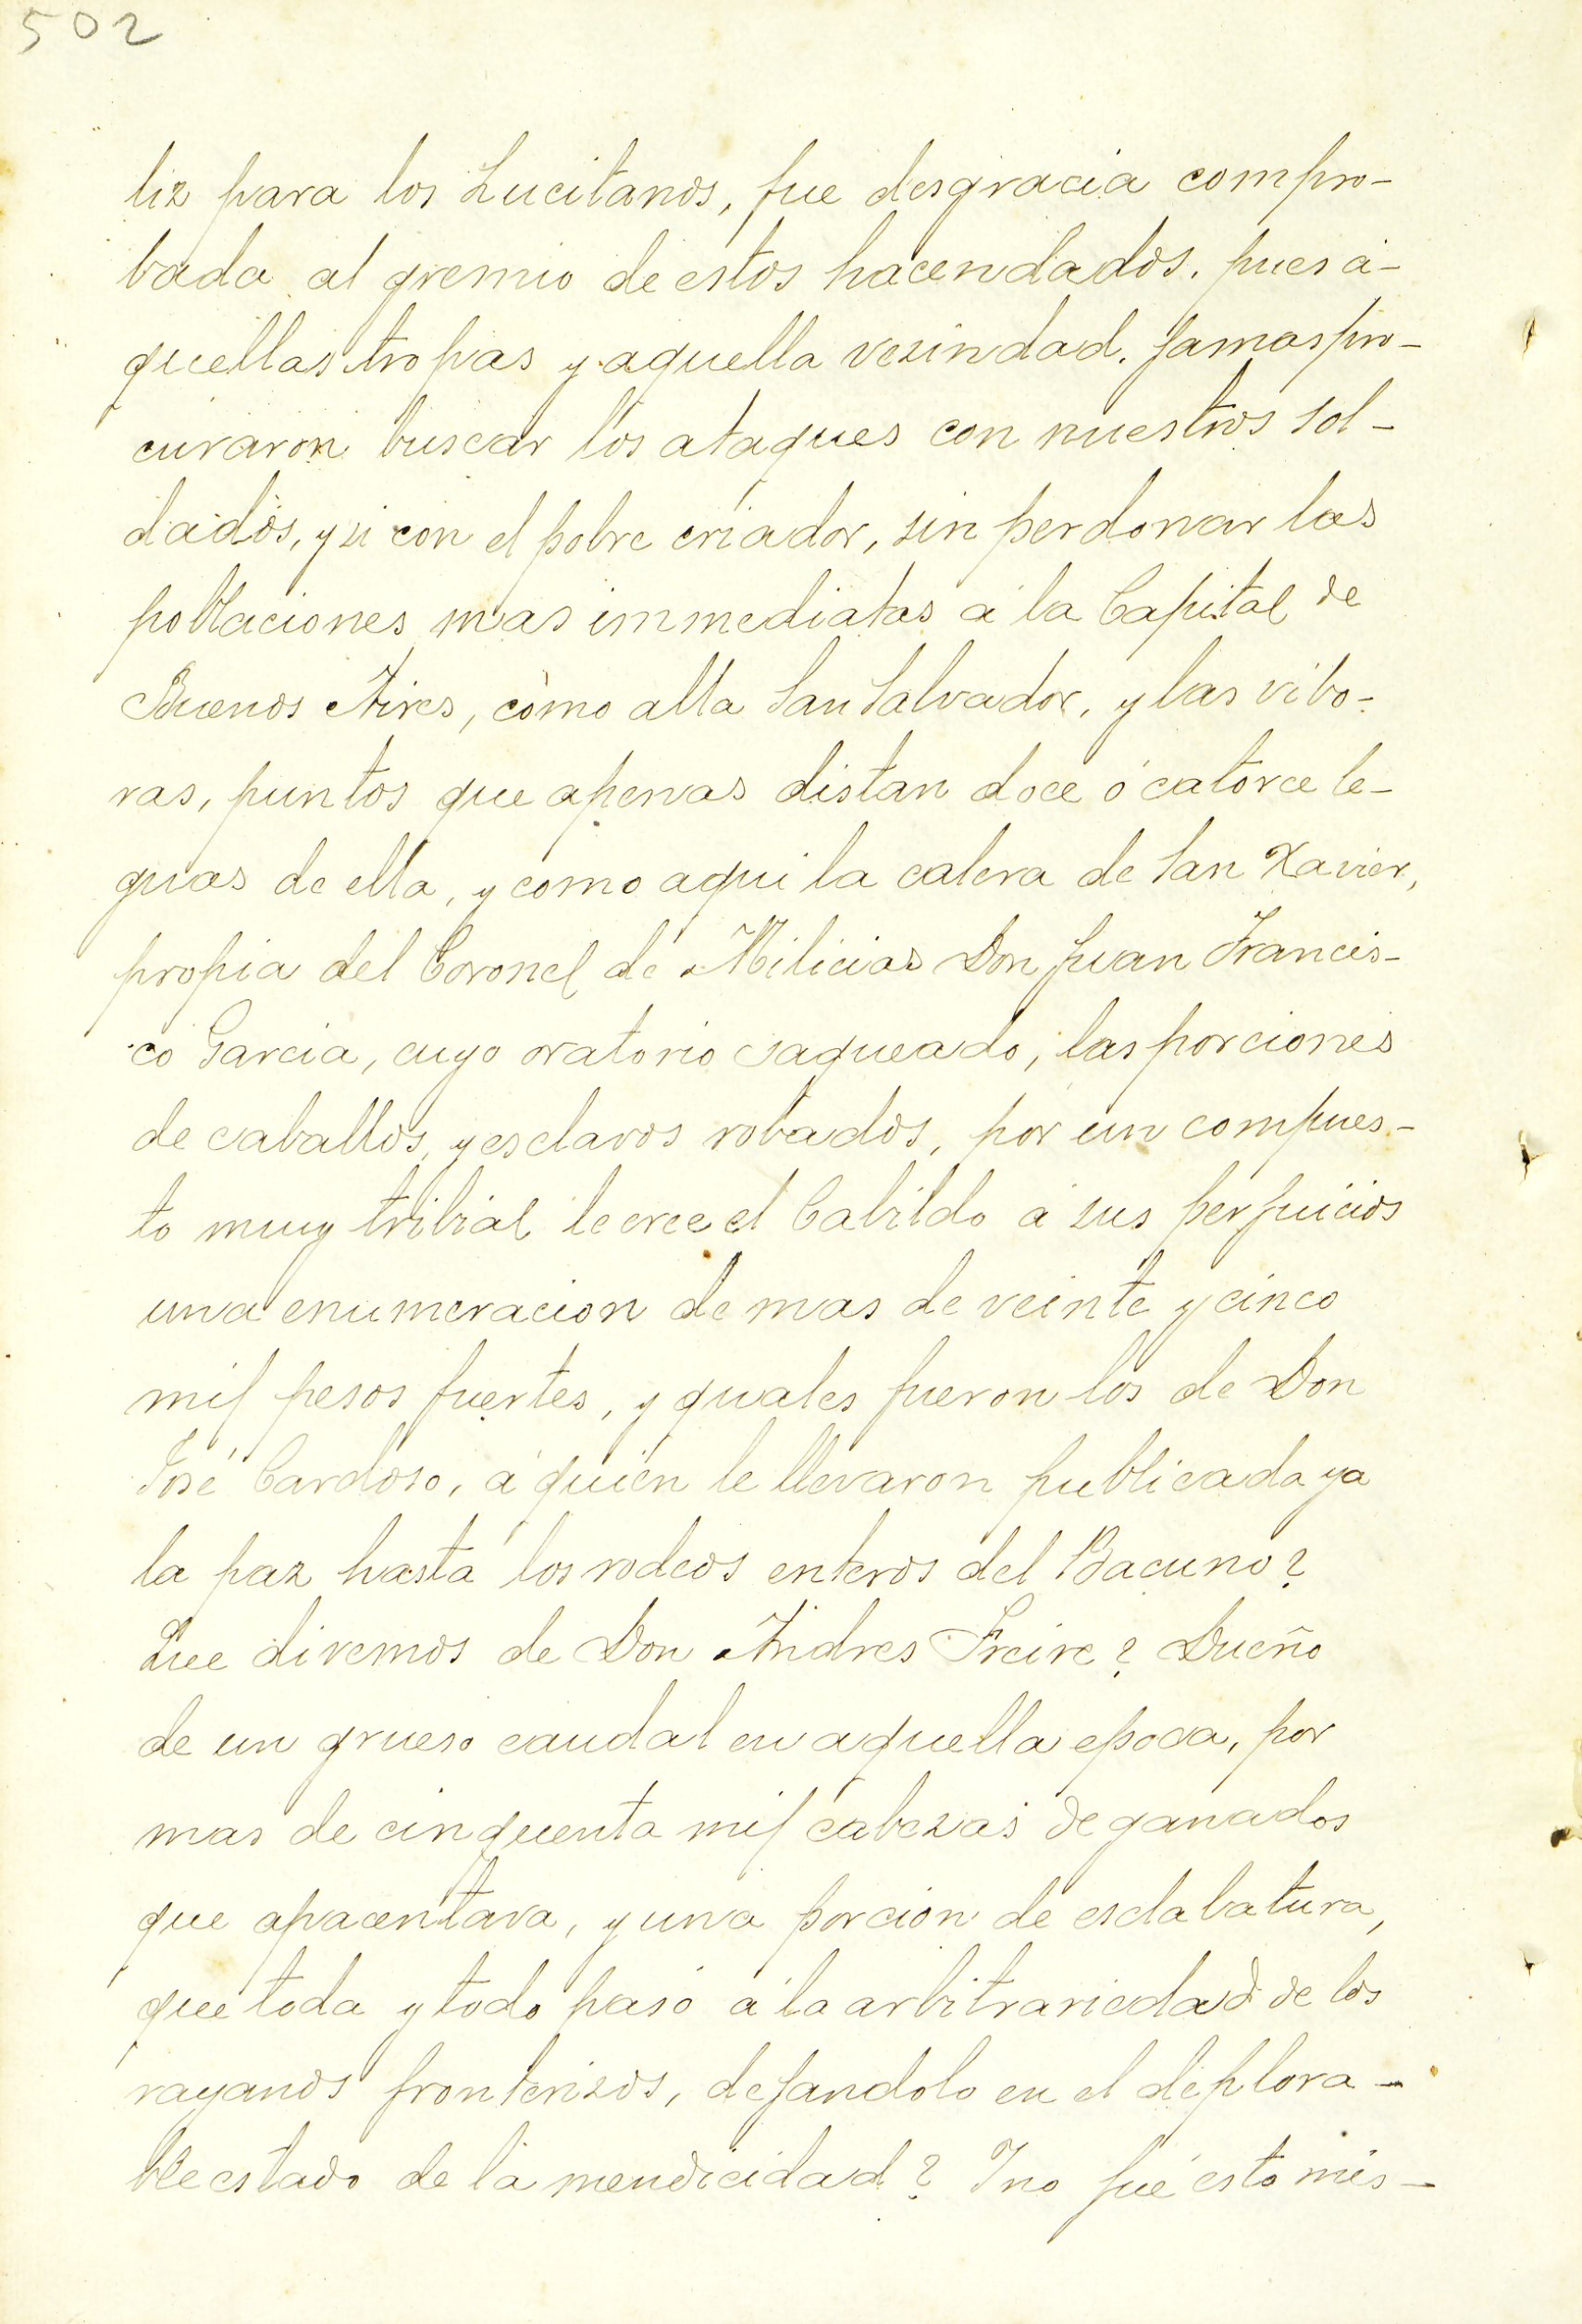 502
liz para los Lucitanos, fue desgracia compro-
bada al gremio de estos hacendados. pues a-
quellas tropas y aquella vezindad. Jamas pro-
curaron buscar los ataques con nuestros sol-
dados, y si con el pobre criador, sin perdonar las
poblaciones mas immediatas á la Capital de
Buenos Aires, como alla San Salvador, y las vibo-
ras, puntos que apenas distan doce ó catorce le-
guas de ella, y como aqui la calera de San Xavier,
propia del Coronel de Milicias Don Juan Francis-
co Garcia, cuyo oratorio saqueado, las porciones
de caballos, y esclavos robados, por un compues-
to muy tribial le cree el Cabildo á sus perjuicios
una enumeracion de mas de veinte y cinco
mil pesos fuertes, y quales fueron los de Don
José Cardoso, á quien le llevaron publicada ya
la paz hasta los rodeos enteros del Bacuno?
Que diremos de Don Andres Freire? Dueño
de un grueso caudal en aquella epoca, por
mas de cinquenta mil cabezas de ganados
que apacentava, y una porcion de esclabatura,
que toda y todo pasó á la arbitrariedad de los
rayanos fronterizos, dejandolo en el deplora-
ble estado de la mendicidad? Y no fué esto mis-